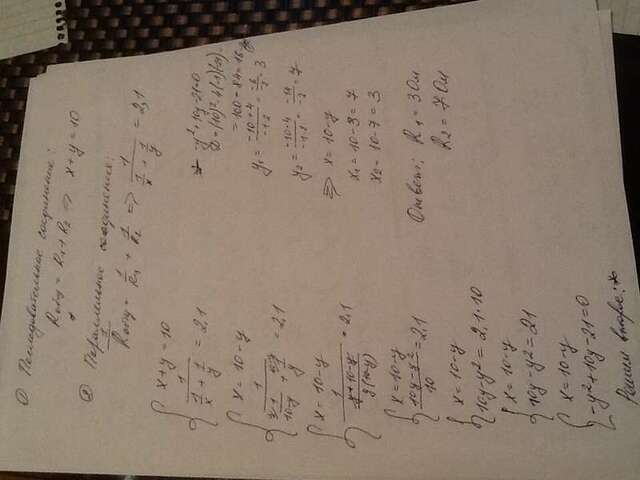 ① Последовательное соединение:
Rобщ = R₁ + R₂ => x + y = 10
② Параллельное соединение:
1/Rобщ = 1/R₁ + 1/R₂ => 1/(1/x + 1/y) = 2,1
{ x + y = 10
1/(1/x + 1/y) = 2,1
{ x = 10 - y
1/(1/(10-y) + 1/y) = 2,1
{ x = 10 - y
1/((y+10-y)/(y(10-y))) = 2,1
{ x = 10 - y
(10y - y²)/10 = 2,1
{ x = 10 - y
10y - y² = 2,1·10
{ x = 10 - y
10y - y² = 21
{ x = 10 - y
-y² + 10y - 21 = 0
Решаем второе: *
* -y² + 10y - 21 = 0
D = (10)² - 4·(-1)(-21)
= 100 - 84 = 16
y₁ = (-10+4)/(-1·2) = -6/-2 = 3
y₂ = (-10-4)/(-1·2) = -14/-2 = 7
=> x = 10 - y
x₁ = 10 - 3 = 7
x₂ = 10 - 7 = 3
Ответ: R₁ = 3 Ом
R₂ = 7 Ом